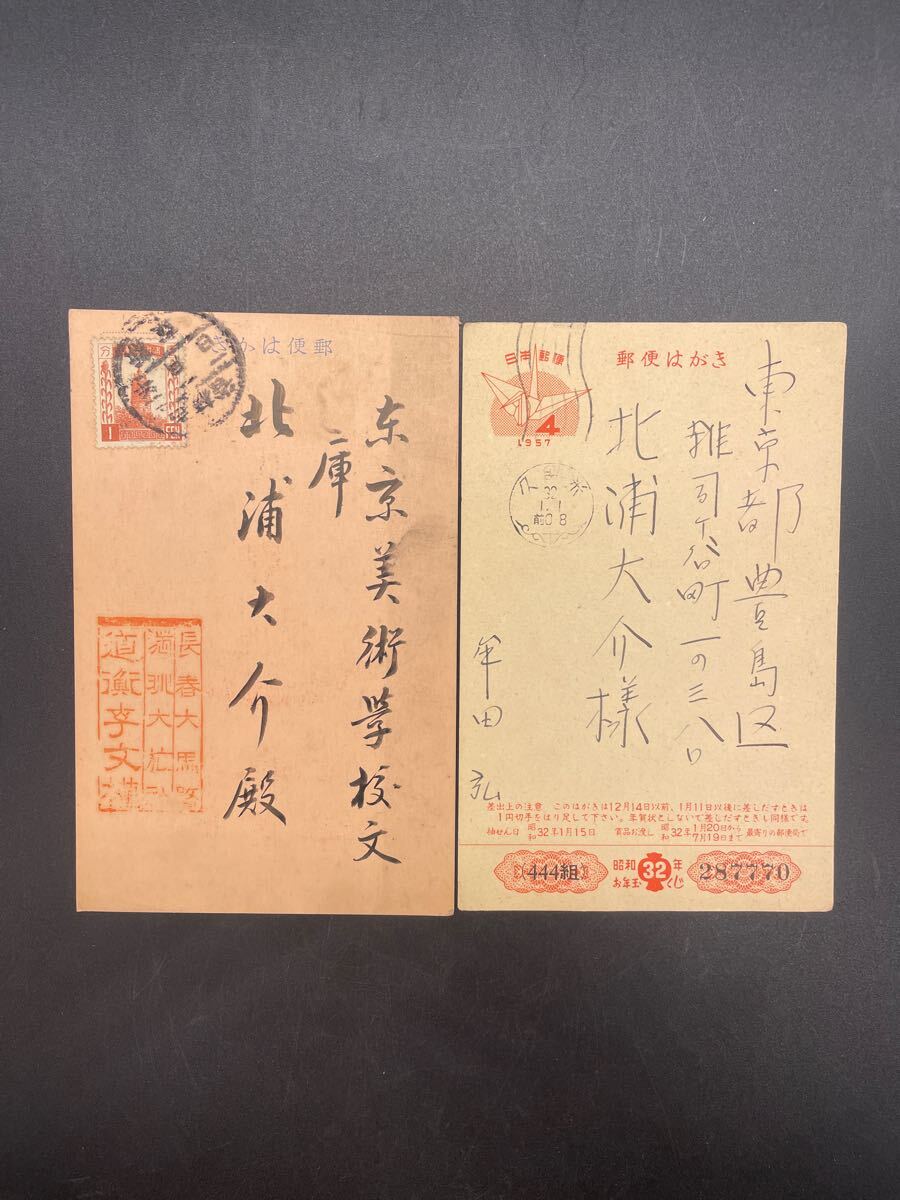 郵便はかき
分
1
FEN
东京美術学校文
庫
北浦大介殿
長春大馬路
道衡李文
日本郵便
4
1957
郵便はがき
32
1.1
前0-8
東京都豊島区
雑司ヶ谷町一の三八〇
北浦大介様
牟田弘
差出上の注意 このはがきは12月14日以前、1月11日以後に差しだすときは
1円切手をはり足して下さい。年賀状としないで差しだすときも同様です。
抽せん日 昭和32年1月15日 賞品お渡し 昭和32年1月20日から7月19日まで 最寄りの郵便局で
444組
昭和32年
お年玉くじ
287770